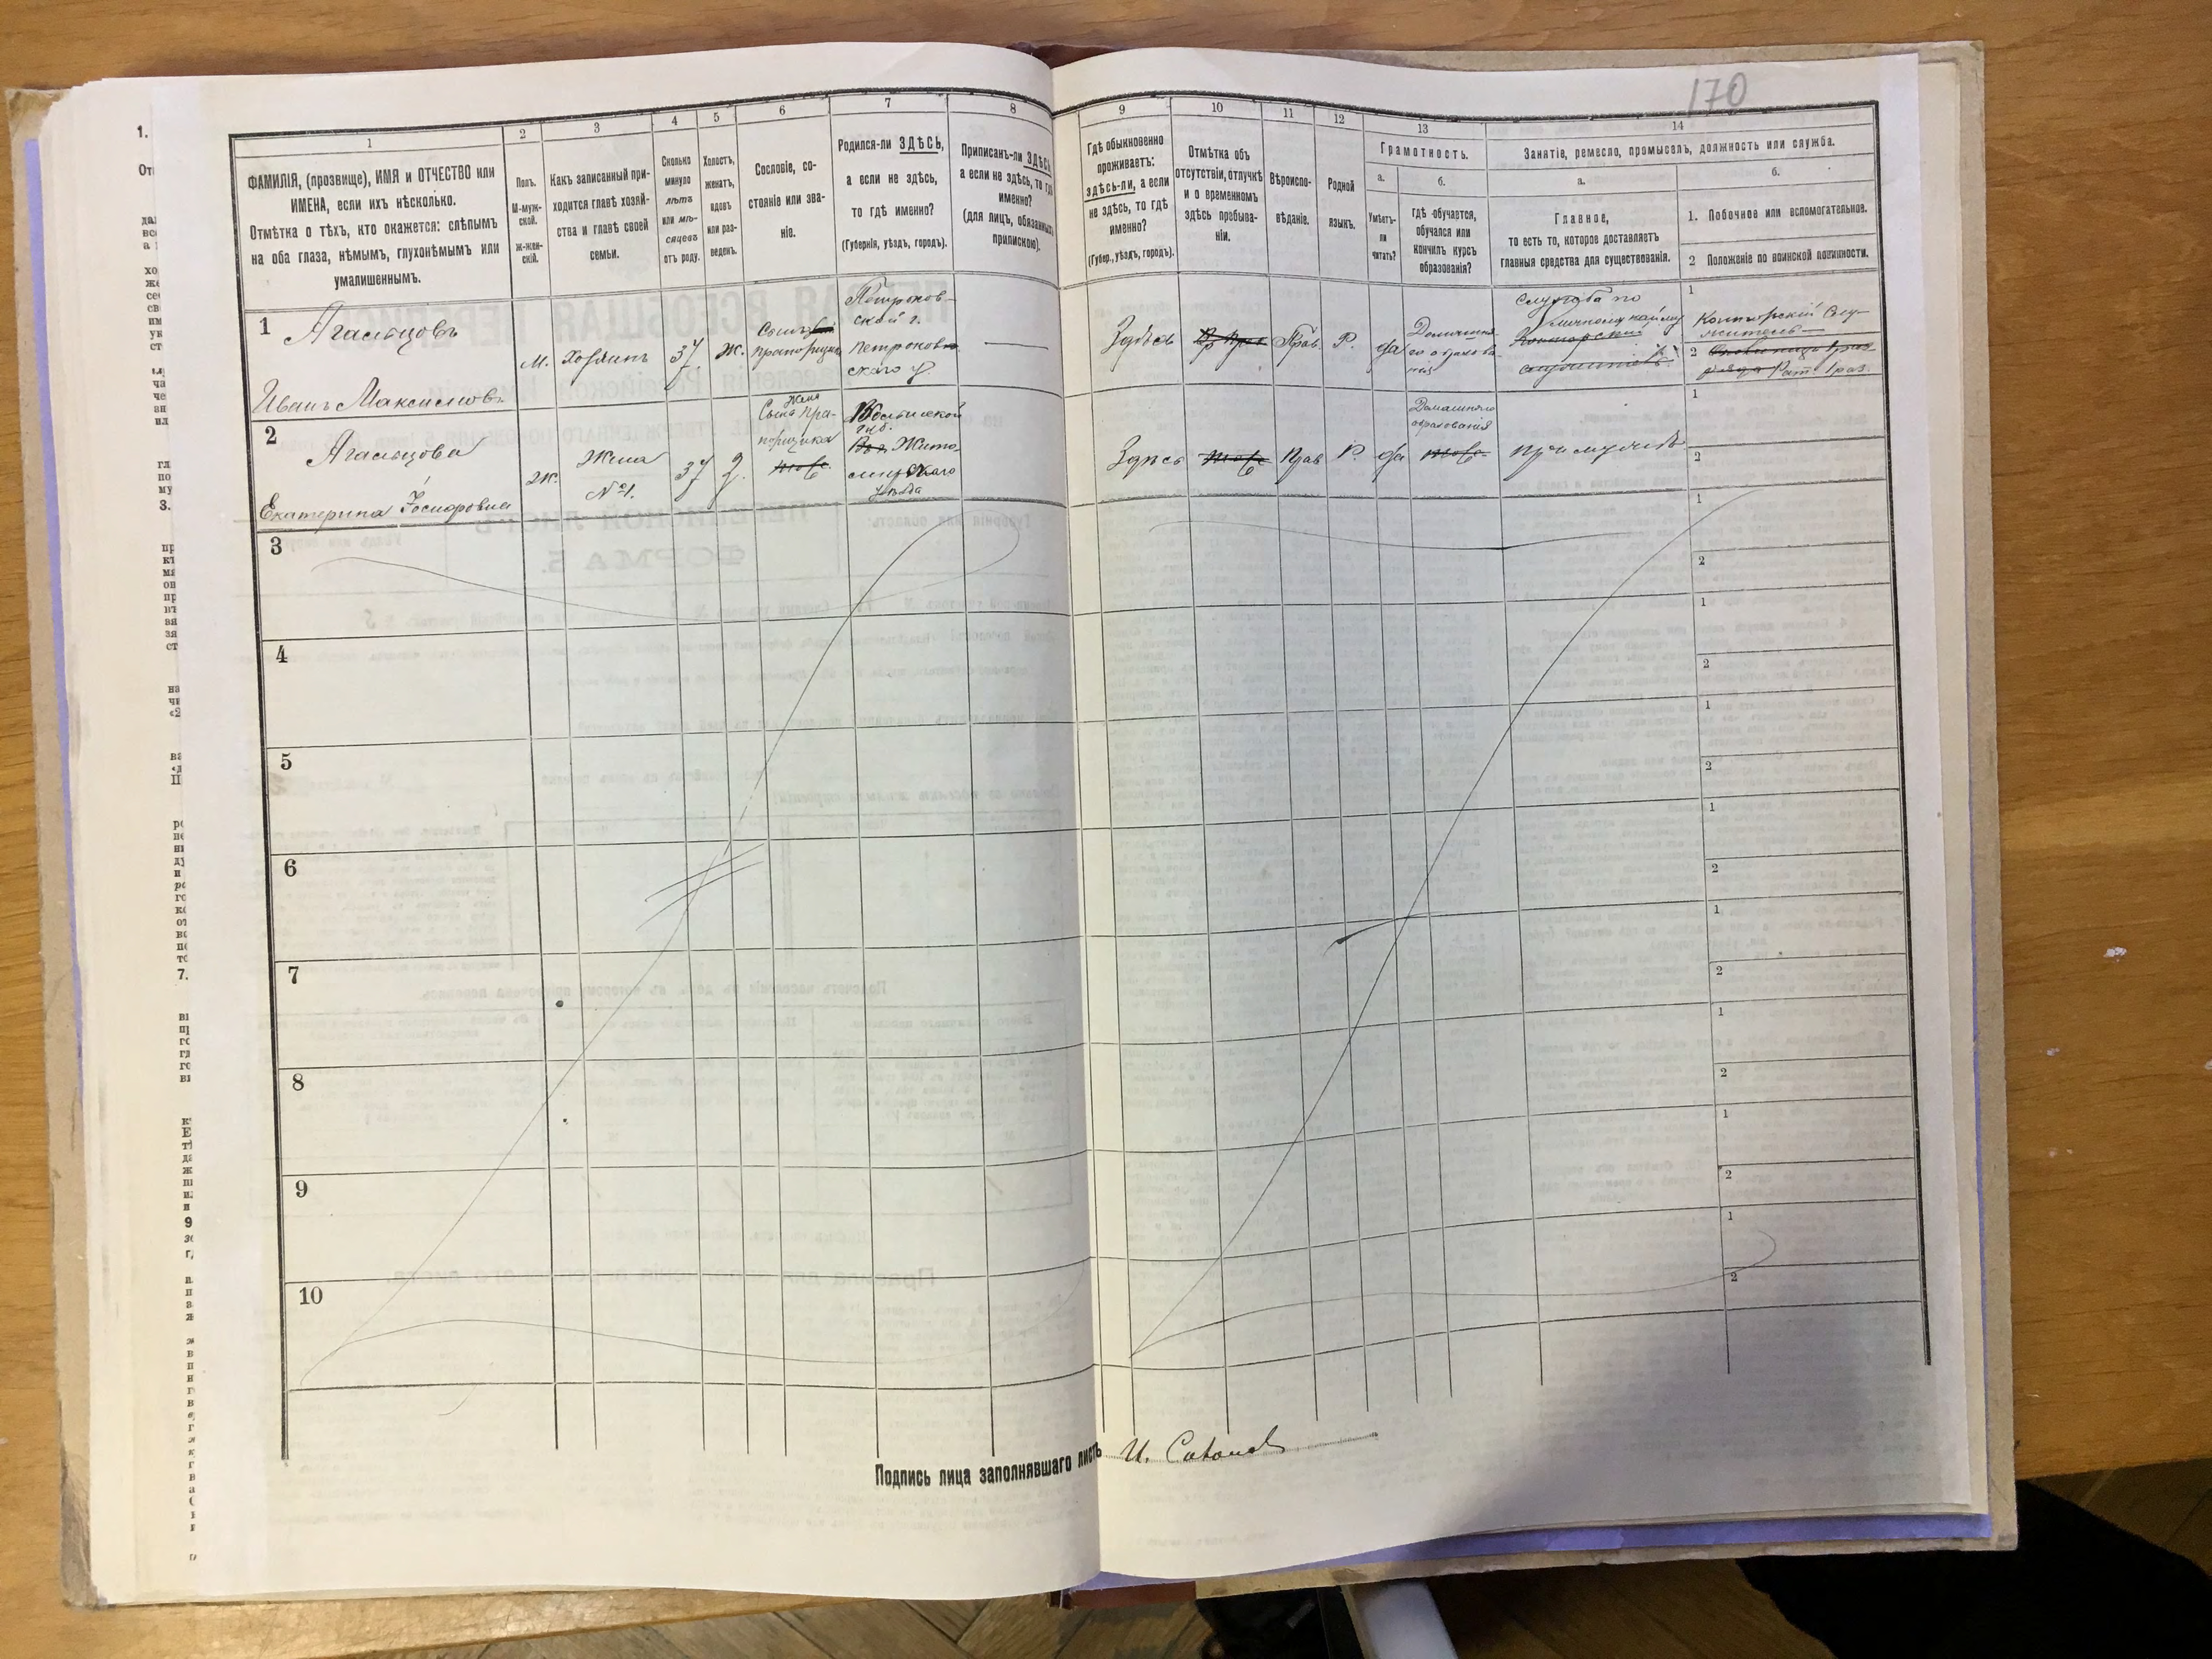 170
1
2
3
4
5
6
7
8
9
10
11
12
13
14
ФАМИЛІЯ, (прозвище), ИМЯ и ОТЧЕСТВО или
ИМЕНА, если ихъ нѣсколько.
Отмѣтка о тѣхъ, кто окажется: слѣпымъ
на оба глаза, нѣмымъ, глухонѣмымъ или
умалишеннымъ.
Полъ.
М-муж-
ской.
ж-жен-
скій.
Какъ записанный при-
ходится главѣ хозяй-
ства и главѣ своей
семьи.
Сколько
минуло
лѣтъ
или мѣ-
сяцевъ
отъ роду.
Холостъ,
женатъ,
вдовъ
или раз-
веденъ.
Сословіе, со-
стояніе или зва-
ніе.
Родился-ли ЗДѢСЬ,
а если не здѣсь,
то гдѣ именно?
(Губернія, уѣздъ, городъ).
Приписанъ-ли ЗДѢСЬ
а если не здѣсь, то гдѣ
именно?
(для лицъ, обязанныхъ
припискою).
Гдѣ обыкновенно
проживаетъ:
здѣсь-ли, а если
не здѣсь, то гдѣ
именно?
(Губер., уѣздъ, городъ).
Отмѣтка объ
отсутствіи, отлучкѣ
и о временномъ
здѣсь пребыва-
ніи.
Вѣроиспо-
вѣданіе.
Родной
языкъ.
Грамотность.
а.
Умѣетъ-
ли
читать?
б.
гдѣ обучается,
обучался или
кончилъ курсъ
образованія?
Занятіе, ремесло, промыселъ, должность или служба.
а.
Главное,
то есть то, которое доставляетъ
главныя средства для существованія.
б.
1. Побочное или вспомогательное.
2 Положеніе по воинской повинности.
1
Агальцовъ
Иванъ Максимовъ
М.
Хозяинъ
37
Ж.
Сынъ
прапорщика
Петроков-
ской г.
Петроков-
скаго у.
Здѣсь
Прав.
Р.
да
Домашня-
го образова-
нія
Служба по
личному найму
Конторскій
служитель
1
Конторскій Слу-
житель
2
Рат. 1 раз.
2
Агальцова
Екатерина
Ж.
Жена
№ 1.
37
З.
Жена
Сына пра-
порщика
тоже
Волынской
губ.
Жито-
мирскаго
уѣзда
Здѣсь
тоже
Прав
Р.
да
Домашняго
образованія
тоже
при мужѣ
1
2
3
1
2
4
1
2
5
1
2
6
1
2
7
1
2
8
1
2
9
1
2
10
1
2
Подпись лица заполнявшаго листъ